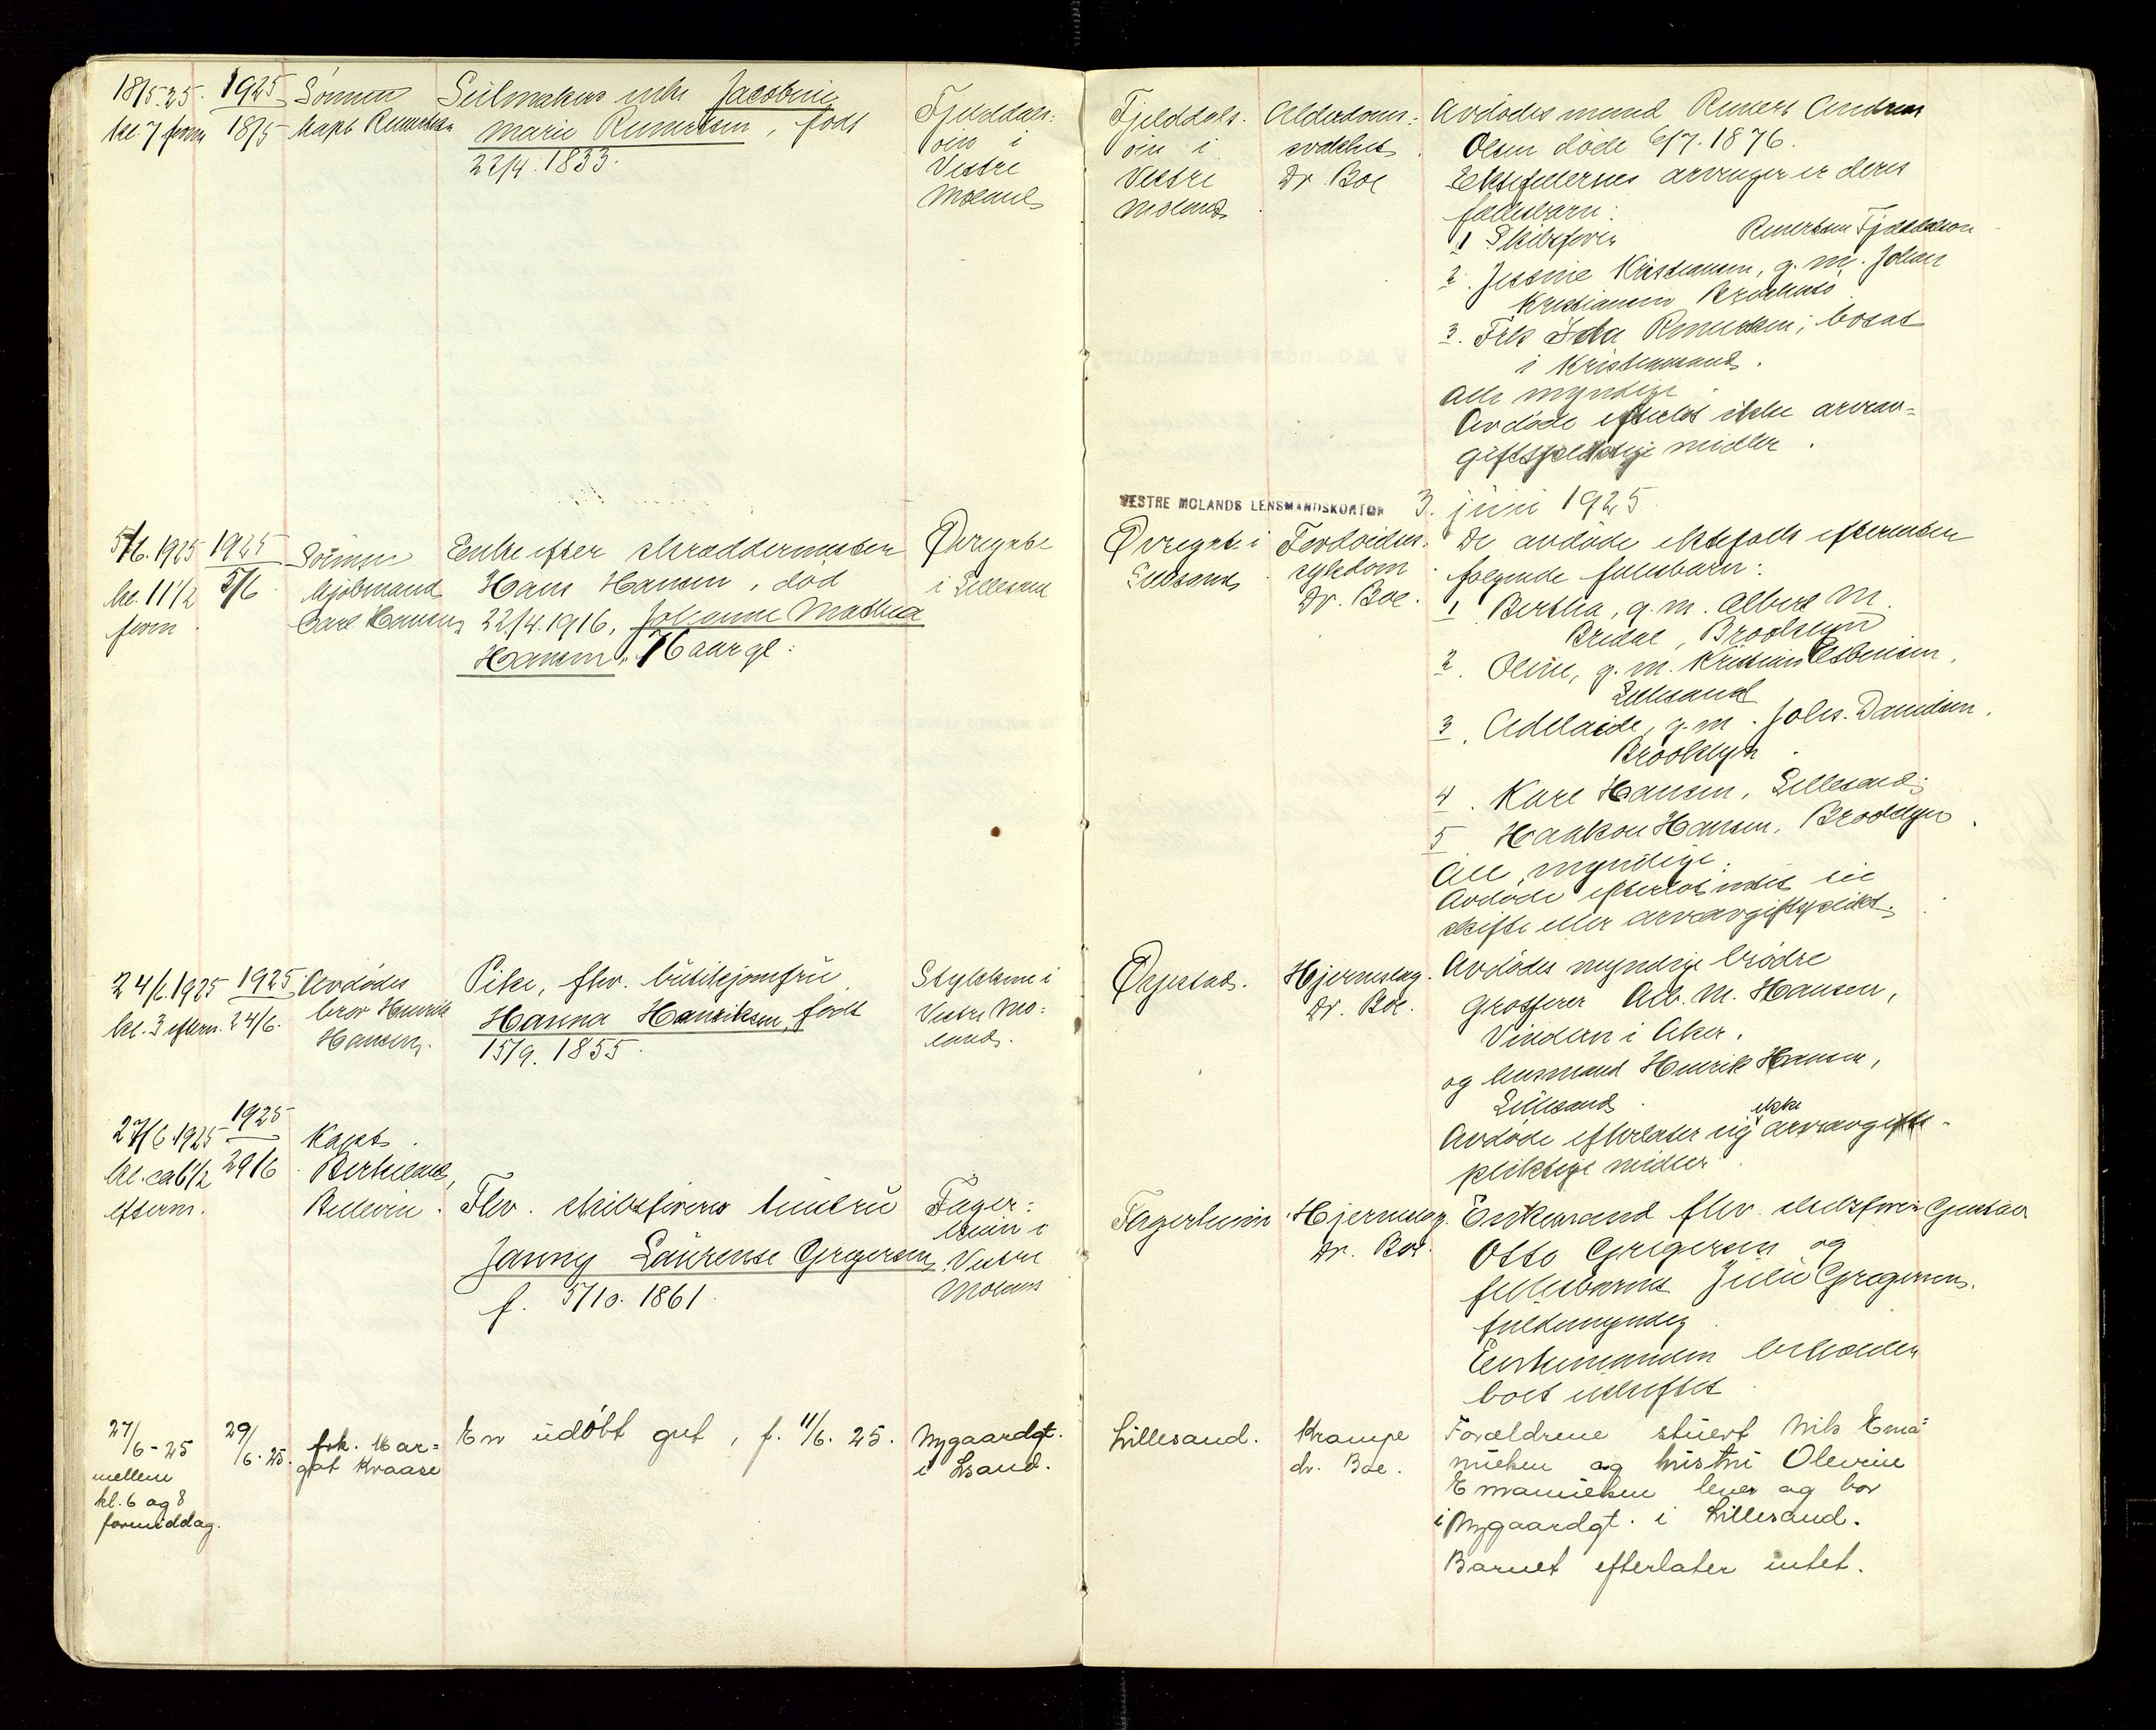 18/5.25.
kl 7 form
1925
18/5
Sønnen
Kapt Reinertsen
Seilmakers enke Jacobine
Marie Reinertsen, født
22/4.1833.
Fjelddals-
øen i
Vestre
Moland
Fjelddals-
øen i
Vestre
Moland
Alderdoms-
svakhet
Dr. Boe
Avdødes mand Reinert Andreas
Olsen døde 6/7.1876.
Ektefellernes arvinger er deres
fællesbarn:
1 Skibsfører Reinertsen Fjelddalsøen
2. Jessine Kristiansen, g.m. Johan
Kristiansen
3. Frk Ida Reinertsen, bosat
i Kristianssand.
Alle myndige.
Avdøde efterlot ikke arveav-
giftspliktige midler.
VESTRE MOLANDS LENSMANDSKONTOR 3. juni 1925
5/6.1925
kl. 11 1/2
form.
1925
5/6
Sønnen
Carl Hansen
Enke efter skræddermester
Hans Hansen, død
22/4.1916, Johanne Mathea
Hansen, 76 aar gl.
Øvregate
i Lillesand
Øvregate i
Lillesand
Fordøieles.
sykdom
Dr. Boe.
De avdøde ektefolk efterlater
følgende fællesbarn:
1 Bertha, g.m. Albert M.
Bredal, Brooklyn
2. Oline, g.m. Kristian Esbensen,
Lillesand
3. Adelaide, g.m. Johs. Danielsen,
Brooklyn.
4. Karl Hansen, Lillesand.
5 Haakon Hansen, Brooklyn.
Alle myndige.
Avdøde efterlot intet til
skifte eller arveavgiftspligt.
24/6.1925
kl. 3 eftern.
1925
24/6.
Avdødes
bror Henrik
Hansen.
Pike, fhv. butikjomfru
Hanna Henriksen, født
15/9.1855.
Stykkene i
Vestre Mo-
land.
Øgrestad.
Hjerneslag.
Dr. Boe.
Avdødes myndige brødre
grosserer Adb. M. Hansen,
Vindern i Aker,
og lensmand Henrik Hansen,
Lillesand.
Avdøde efterlater sig ikke arveavgifts-
pliktige midler.
27/6.1925
kl. ca 6 1/2
efterm.
1925
29/6
Kapt.
Birkeland,
Bellevue.
Fhv. skibsførers hustru
Janny Laurense Gregersen,
f. 5/10.1861.
Fager-
heim i
Vestre
Moland
Fagerheim
Hjerneslag.
Dr. Boe.
Enkemand fhv. skibsfører Gustav
Otto Gregersen og
fællesbarnet Julie Gregersen,
fuldmyndig.
Enkemanden beholder
boet uskiftet.
27/6-25
mellem
kl. 6 og 8
formiddag.
29/6.25.
frk. Mar-
got Kraase
En udøbt gut, f. 11/6. 25.
Nygaardgt.
i Lsand.
Lillesand.
Krampe
dr. Boe.
Forældrene stuert Nils Ema-
nuelsen og hustru Olevine
Emanuelsen lever og bor
i Nygaardgt. i Lillesand.
Barnet efterlater intet.